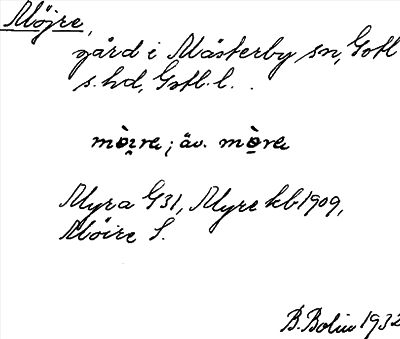 Möjre,
gård i Mästerby sn, Gotl
s. hd, Gotl. l.
mòi̯ra; äv. mò̤ra
Myra G31, Myre kb 1909,
Möire S.
B. Bolin 1932